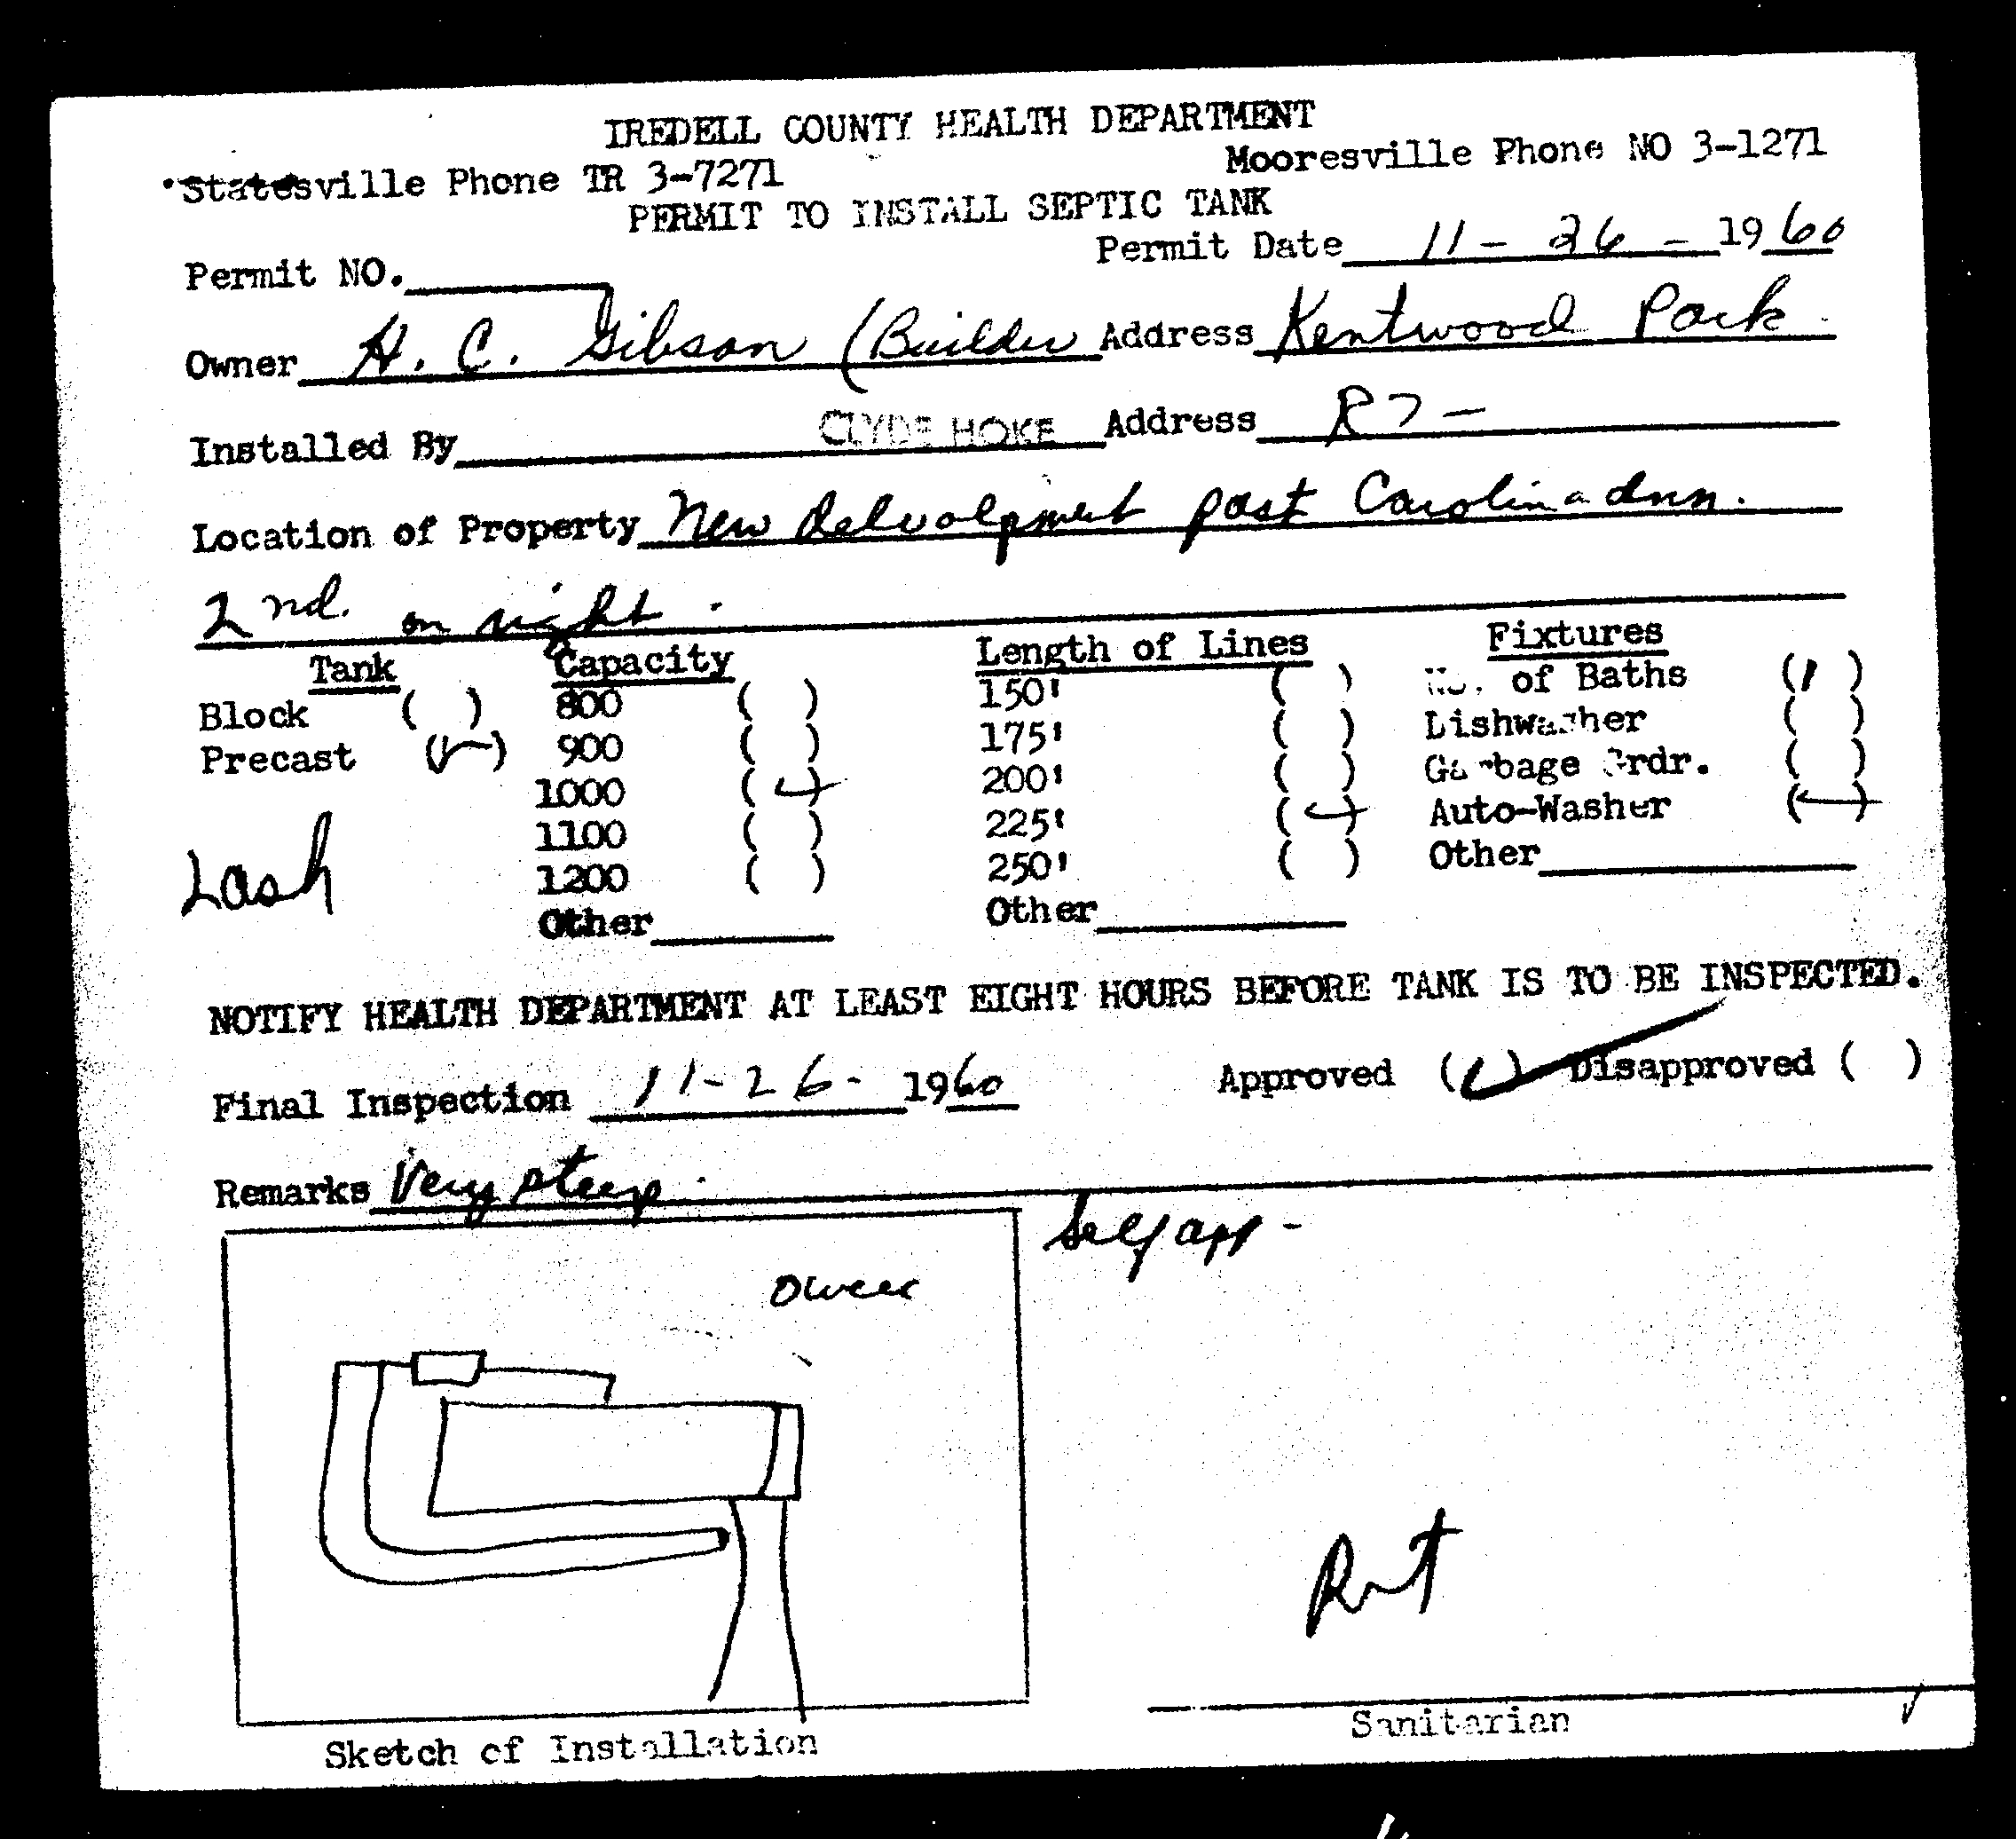 IREDELL COUNTY HEALTH DEPARTMENT
Statesville Phone TR 3-7271 Mooresville Phone NO 3-1271
PERMIT TO INSTALL SEPTIC TANK
Permit NO. Permit Date 11 - 26 - 1960
Owner H. C. Gibson (Builder Address Kentwood Park
Installed By CLYDE HOKE Address R7 -
Location of Property New delvolpment past Carolina
2nd. on right.
Tank Capacity Length of Lines Fixtures
Block ( ) 800 ( ) 150' ( ) No. of Baths (1)
Precast (✓) 900 ( ) 175' ( ) Dishwasher ( )
1000 (✓) 200' ( ) Garbage Grdr. ( )
1100 ( ) 225' (✓) Auto-Washer (✓)
Lash 1200 ( ) 250' ( ) Other
Other Other
NOTIFY HEALTH DEPARTMENT AT LEAST EIGHT HOURS BEFORE TANK IS TO BE INSPECTED.
Final Inspection 11-26- 1960 Approved (✓) Disapproved ( )
Remarks Very steep.
Self app -
Sanitarian
Sketch of Installation